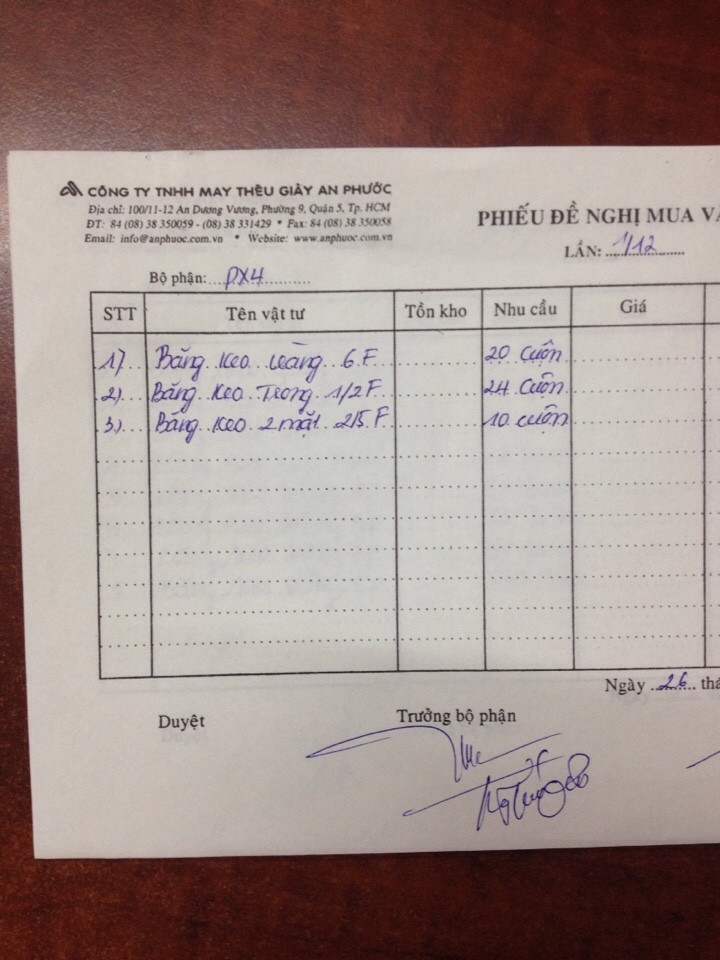 CÔNG TY TNHH MAY THÊU GIÀY AN PHƯỚC
Địa chỉ: 100/11-12 An Dương Vương, Phường 9, Quận 5, Tp. HCM
ĐT: 84 (08) 38 350059 - (08) 38 331429 * Fax: 84 (08) 38 350058
Email: info@anphuoc.com.vn * Website: www.anphuoc.com.vn
PHIẾU ĐỀ NGHỊ MUA VẬ
LẦN: 1/12
Bộ phận: PX4
STT Tên vật tư Tồn kho Nhu cầu Giá
1) Băng keo 6 F 20 cuộn
2) Băng keo Trong 1/2 F 24 cuộn
3) Băng keo 2 mặt 2/5 F 10 cuộn
Ngày 26 thá
Duyệt Trưởng bộ phận